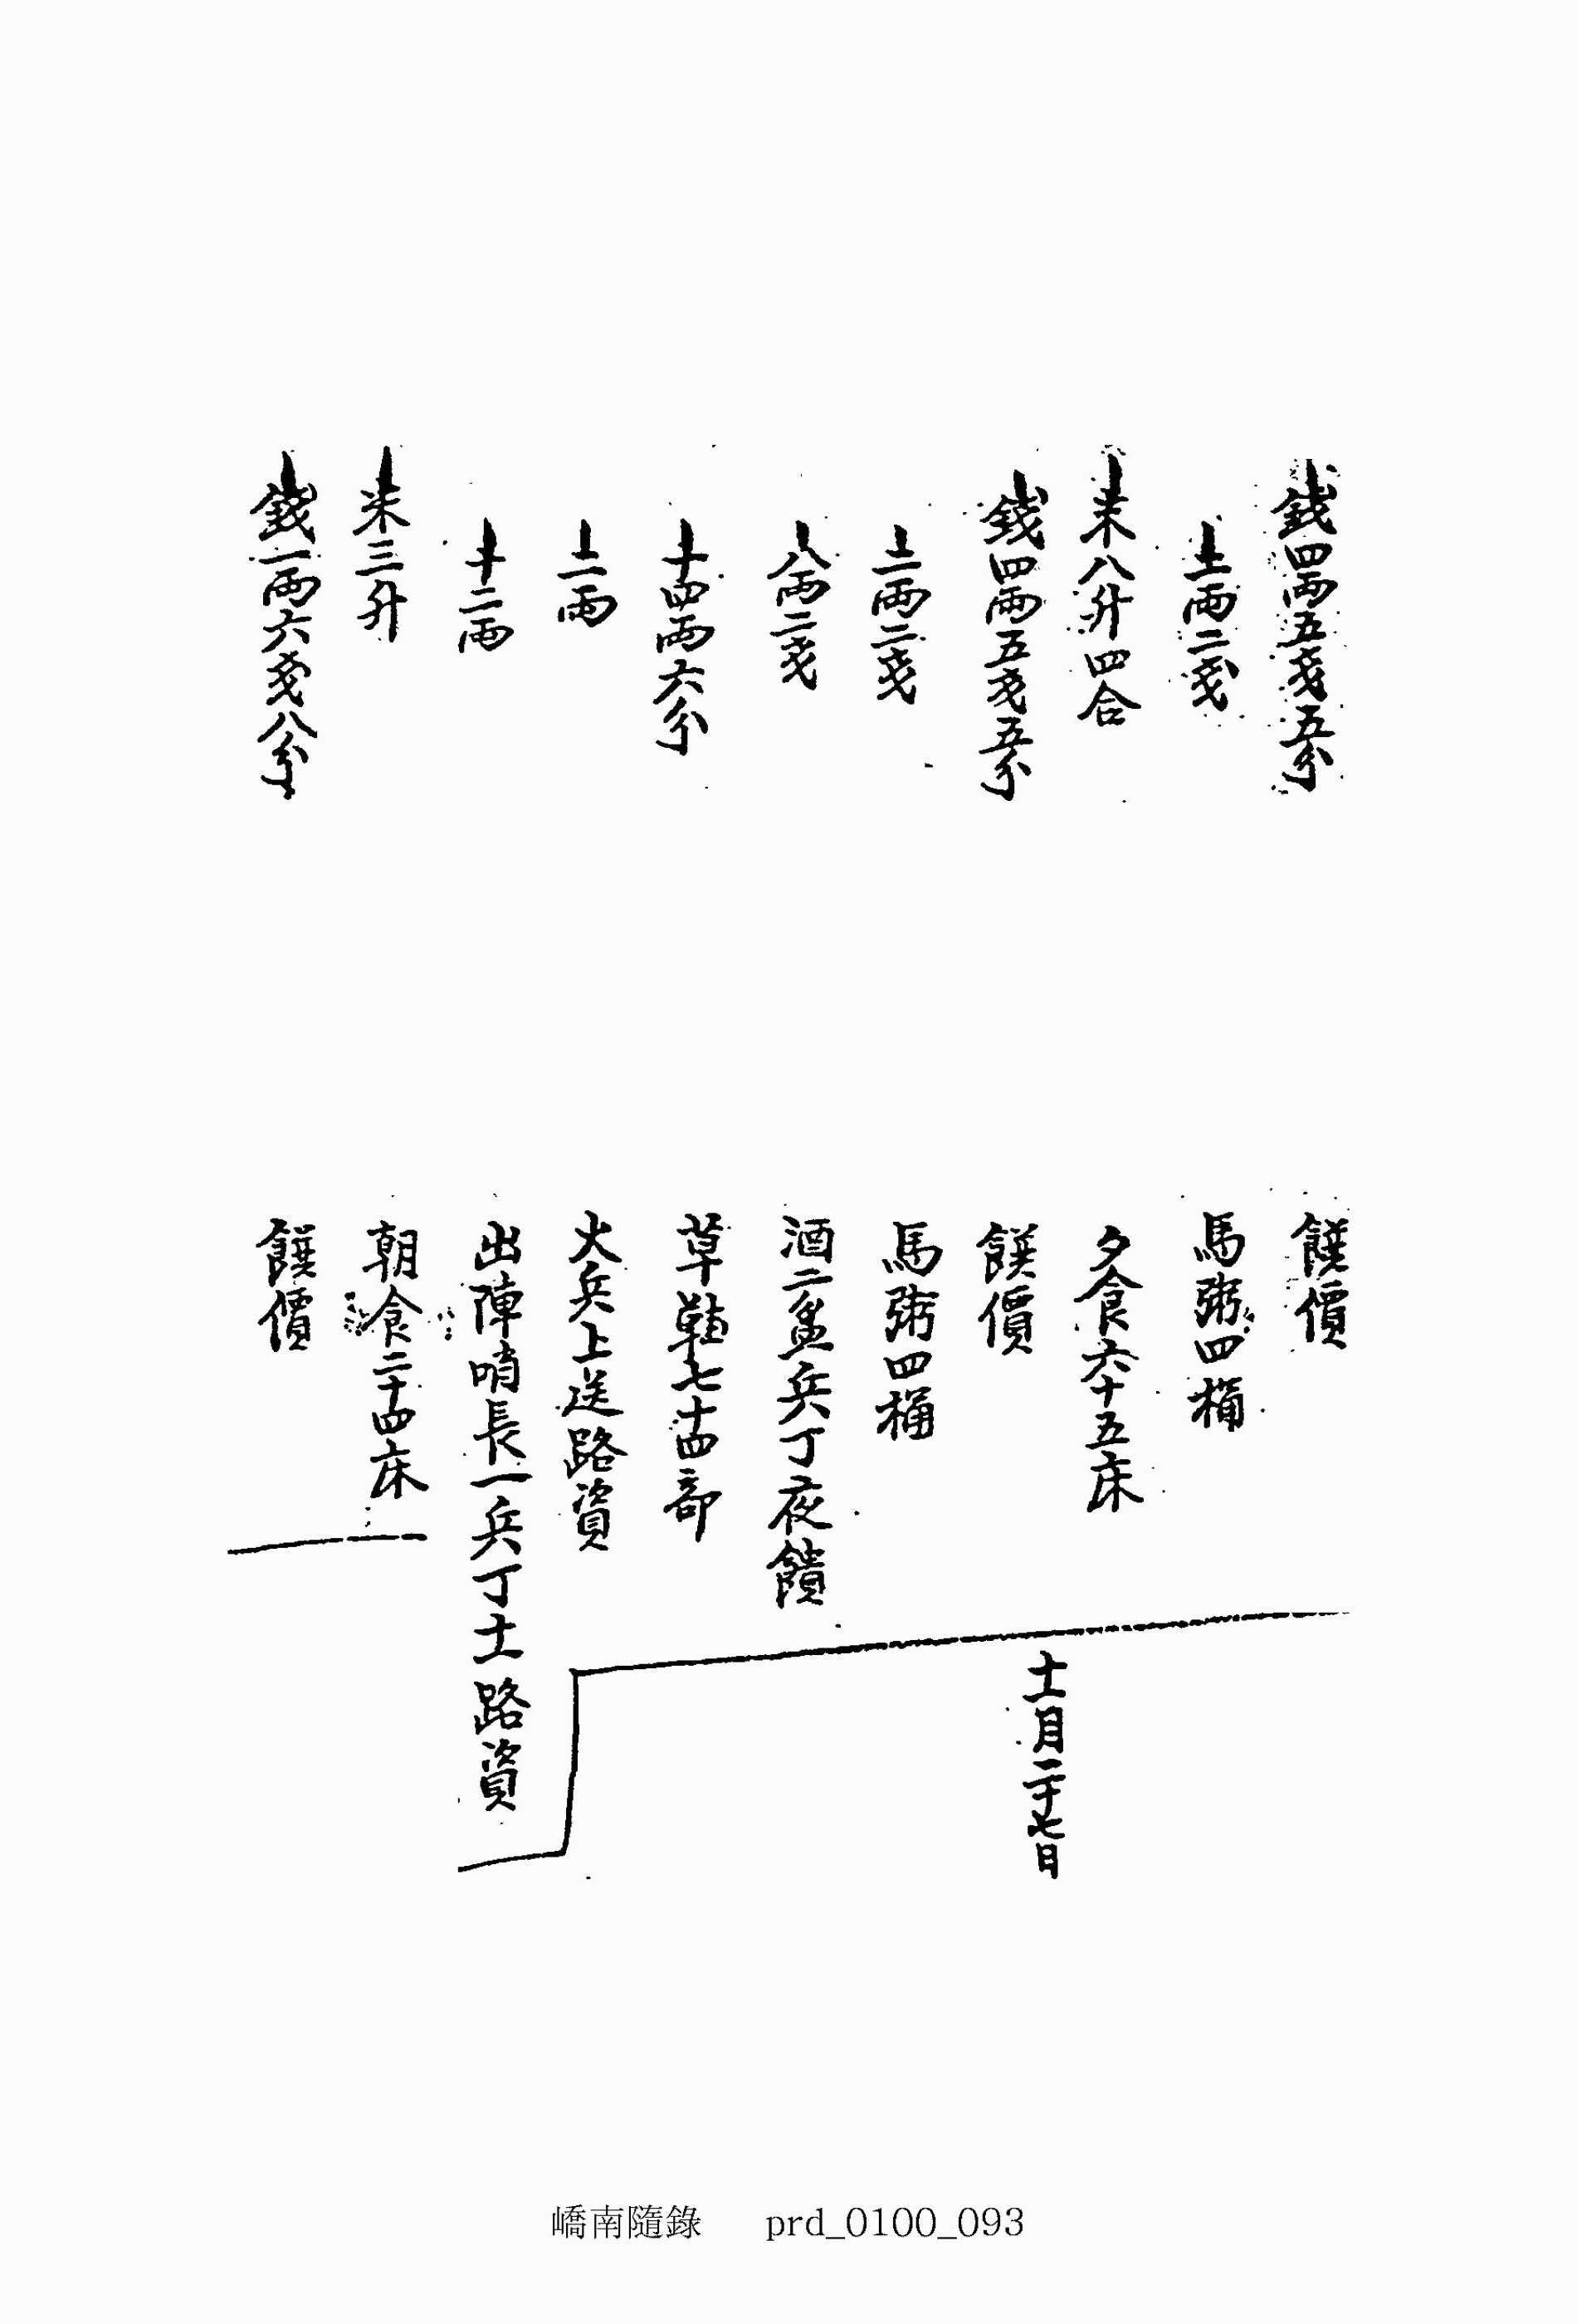 錢四兩五戔五分 饌價
二兩二戔 馬粥四桶
米八升四合 夕食六十五床
錢四兩五戔五分 饌價
二兩二戔 馬粥四桶
八兩二戔 酒二盆兵丁夜饋
十四兩六分 草鞋七十四部
二兩 火兵上送路資
十二兩 出陣哨長一兵丁十一路資
米三升 朝食二十四床
錢一兩六戔八分 饌價
十一月二十七日
嶠南隨錄 prd_0100_093